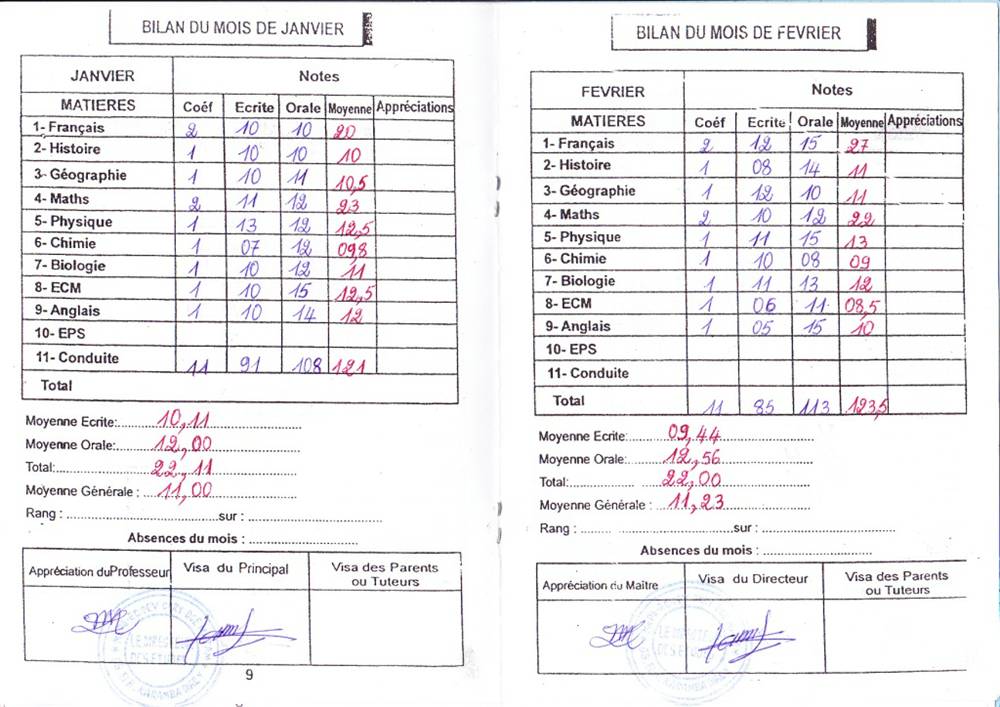 BILAN DU MOIS DE JANVIER
JANVIER Notes
MATIERES Coéf Ecrite Orale Moyenne Appréciations
1- Français 2 10 10 20
2- Histoire 1 10 10 10
3- Géographie 1 10 11 10,5
4- Maths 2 11 12 23
5- Physique 1 13 12 12,5
6- Chimie 1 07 12 09,8
7- Biologie 1 10 12 11
8- ECM 1 10 15 12,5
9- Anglais 1 10 14 12
10- EPS
11- Conduite 11 91 108 121
Total
Moyenne Ecrite: 10,11
Moyenne Orale: 12,00
Total: 22,11
Moyenne Générale : 11,00
Rang : sur :
Absences du mois :
Appréciation du Professeur Visa du Principal Visa des Parents ou Tuteurs
LE DIRECTEUR
DES ETUDES
9
BILAN DU MOIS DE FEVRIER
FEVRIER Notes
MATIERES Coéf Ecrite Orale Moyenne Appréciations
1- Français 2 12 15 27
2- Histoire 1 08 14 11
3- Géographie 1 12 10 11
4- Maths 2 10 12 22
5- Physique 1 11 15 13
6- Chimie 1 10 08 09
7- Biologie 1 11 13 12
8- ECM 1 06 11 08,5
9- Anglais 1 05 15 10
10- EPS
11- Conduite
Total 11 85 113 123,5
Moyenne Ecrite: 09,44
Moyenne Orale: 12,56
Total: 22,00
Moyenne Générale : 11,23
Rang : sur :
Absences du mois :
Appréciation du Maître Visa du Directeur Visa des Parents ou Tuteurs